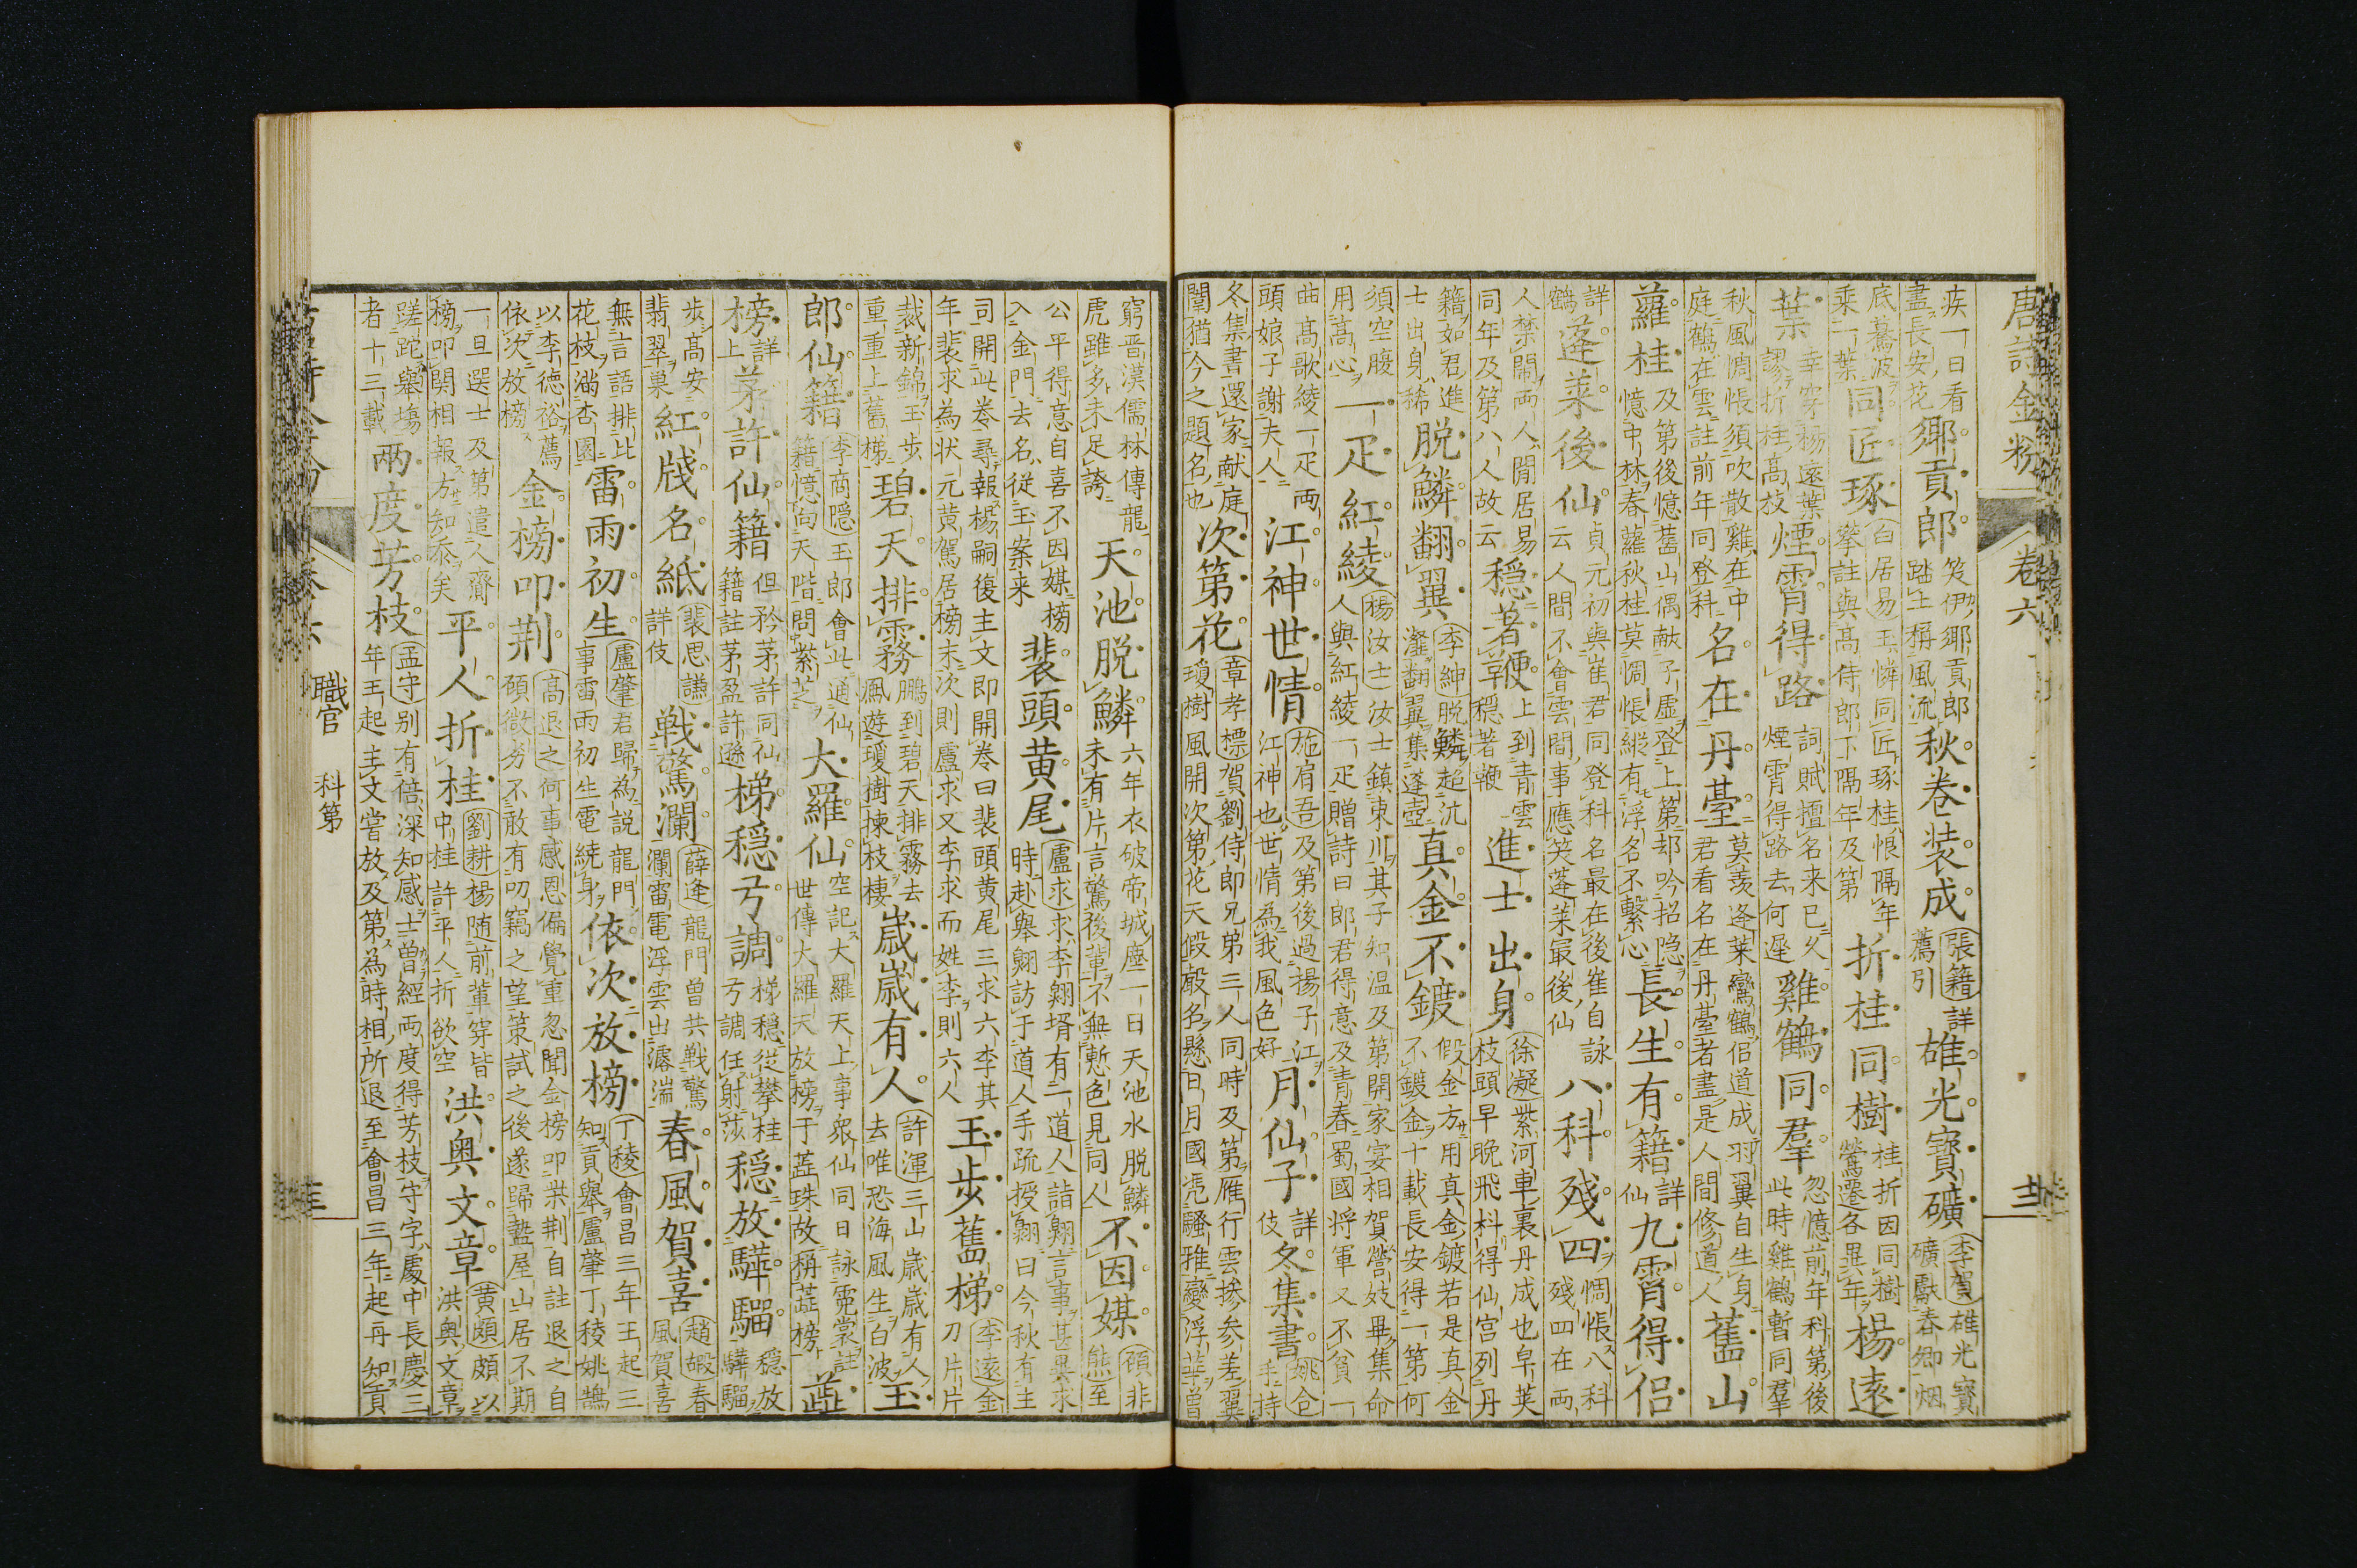 唐詩金粉 卷六
疾一日看盡長安花 鄉貢郎 笑伊鄉貢郎踏土稱風流 秋卷装成 張籍詳薦引 雄光寳礦 李賀雄光寳礦獻春卿烟
底驀波乘一葉 同匠琢 白居易玉憐同匠琢桂恨隔年攀註與高侍郎下隔年及第 折桂同樹 桂折因同樹鶯遷各異年 楊遠
葉 幸穿楊遠葉謬折桂高枝 煙霄得路 詞賦擅名来已久煙霄得路去何遲 雞鶴同羣 忽憶前年科第後此時雞鶴暫同羣
秋風惆悵須吹散雞在中庭鶴在雲註前年同登科 名在丹臺 莫羨逢莱鸞鶴侶道成羽翼自生身君看名在丹臺者盡是人間修道人 舊山
蘿桂 及第後憶舊山偶献子虚登上第却吟招隐憶中林春蘿秋桂莫惆悵縱有浮名不繫心 長生有籍 詳仙 九霄得侶
詳鶴 蓬莱後仙 貞元初與崔君同登科名最在後崔自詠云人間不會雲間事應笑蓬莱最後仙 八科殘四 惆悵八科殘四在兩
人禁閙兩人閒居易同年及第八人故云 穏著鞭 上到青雲穏著鞭 進士出身 徐凝紫河車裏丹成也皁莢枝頭早晚飛料得仙宫列丹
籍如君進士出身稀 脱鱗翻翼 李紳脱鱗超沆瀣翻翼集蓬壺 真金不鍍 假金方用真金鍍若是真金不鍍金十載長安得一第何
須空腹用高心 一疋紅綾 楊汝士汝士鎮東川其子知温及第開家宴相賀營妓畢集命人與紅綾一疋贈詩曰郎君得意及青春蜀國将軍又不貧一
曲高歌綾一疋兩頭娘子謝夫人 江神世情 施肩吾及第後過揚子江江神也世情為我風色好 月仙子 詳伎 冬集書 姚合手持
冬集書還家献庭闈猶今之題名也 次第花 章孝標賀劉侍郎兄弟三人同時及第雁行雲摻参差翼瓊樹風開次第花天假殷名懸日月國凭騷雅變浮華曾
窮晋漢儒林傳龍虎雖多未足誇 天池脱鱗 六年衣破帝城塵一日天池水脱鱗未有片言驚後輩不無慙色見同人 不因媒 顧非熊至
公平得意自喜不因媒榜入金門去名從玉案来 裴頭黄尾 盧求求李翺壻有一道人詣翺言事甚異求時赴舉翺訪于道人手疏授翺曰今秋有主
司開此巻尋報楊嗣復主文即開巻曰裴頭黄尾三求六李其年裴求為状元黄駕居榜末次則盧求又李求而姓李則六人 玉步舊梯 李逺金刀片片
裁新錦玉步重重上舊梯 碧天排霧 鵬到碧天排霧去鳳遊瓊樹揀枝棲 歳歳有人 許渾三山歳歳有人去唯恐海風生白波 玉
郎仙籍 李商隠玉郎會此通仙籍憶向天階問紫芝 大羅仙 空記大羅天上事衆仙同日詠霓裳註世傳大羅天放榜于蕋珠故稱蕋榜 蕋
榜 詳上 茅許仙籍 但矜茅許同仙籍註茅盈許遜 梯穏弓調 梯穏從攀桂弓調任射莎 穏放驊騮 穏放驊騮
歩高安翡翠巢 紅牋名紙 裴思謙詳伎 戦驚瀾 薛逢龍門曾共戦驚瀾雷電浮雲出濬湍 春風賀喜 趙嘏春風賀喜
無言語排比花枝満杏園 雷雨初生 盧肇君歸為説龍門事雷雨初生電繞身 依次放榜 丁稜會昌三年王起三知貢舉盧肇丁稜姚鵠
以李德裕薦依次放榜 金榜叩荆 高退之何事感恩偏覺重忽聞金榜叩柴荆自註退之自顧微劣不敢有叨竊之望策試之後遂歸盩屋山居不期
一旦選士及第遣人齎榜叩関相報方知忝矣 平人折桂 劉耕楊随前輩穿皆中桂許平人折欲空 洪奥文章 黄頗頗以洪奥文章
蹉跎舉塲者十三載 兩度芳枝 孟守别有倍深知感士曾經兩度得芳枝守字處中長慶三年王起主文嘗放及第為時相所退至會昌三年起再知貢
職官 科第